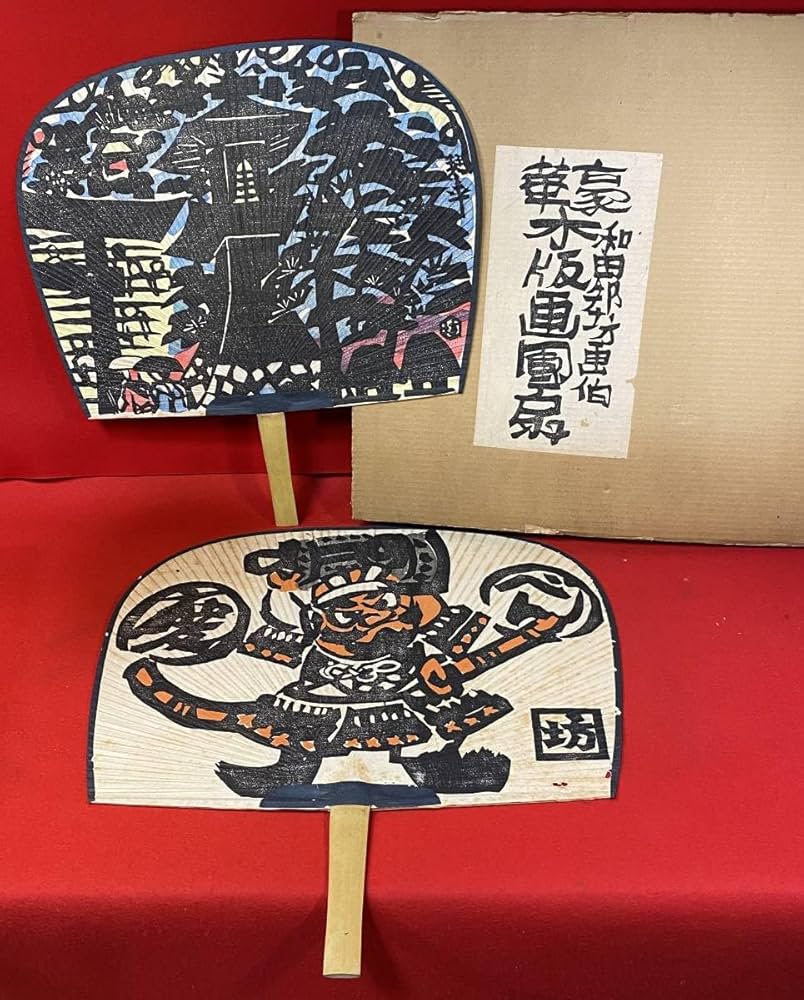 豪華木版画団扇
和田邦坊画伯
坊